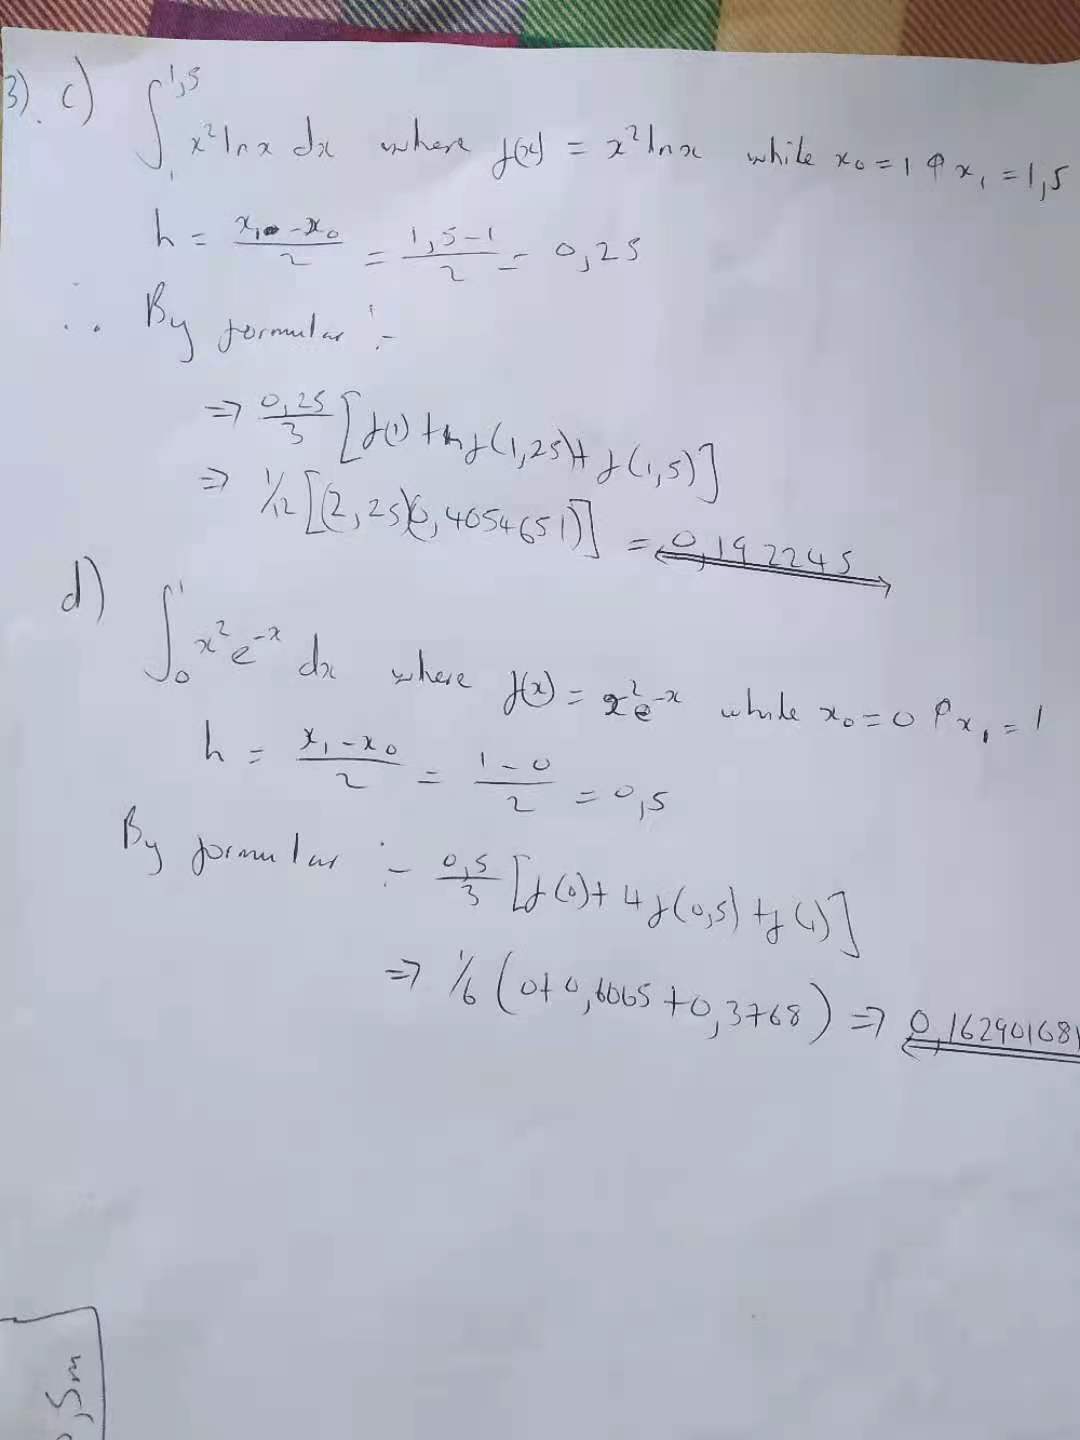 3). c) ∫₁^1,5 x² ln x dx where f(x) = x² ln x while x₀ = 1 & x₁ = 1,5
h = (x₁ - x₀)/2 = (1,5 - 1)/2 = 0,25
∴ By formular :-
⇒ 0,25/3 [f(1) + 4f(1,25) + f(1,5)]
⇒ 1/12 [(2,25)(0,4054651)] = 0,192245
d) ∫₀^1 x² e^-x dx where f(x) = x² e^-x while x₀ = 0 & x₁ = 1
h = (x₁ - x₀)/2 = (1 - 0)/2 = 0,5
By formular :- 0,5/3 [f(0) + 4f(0,5) + f(1)]
⇒ 1/6 (0 + 0,6065 + 0,3768) ⇒ 0,162901681
,5m